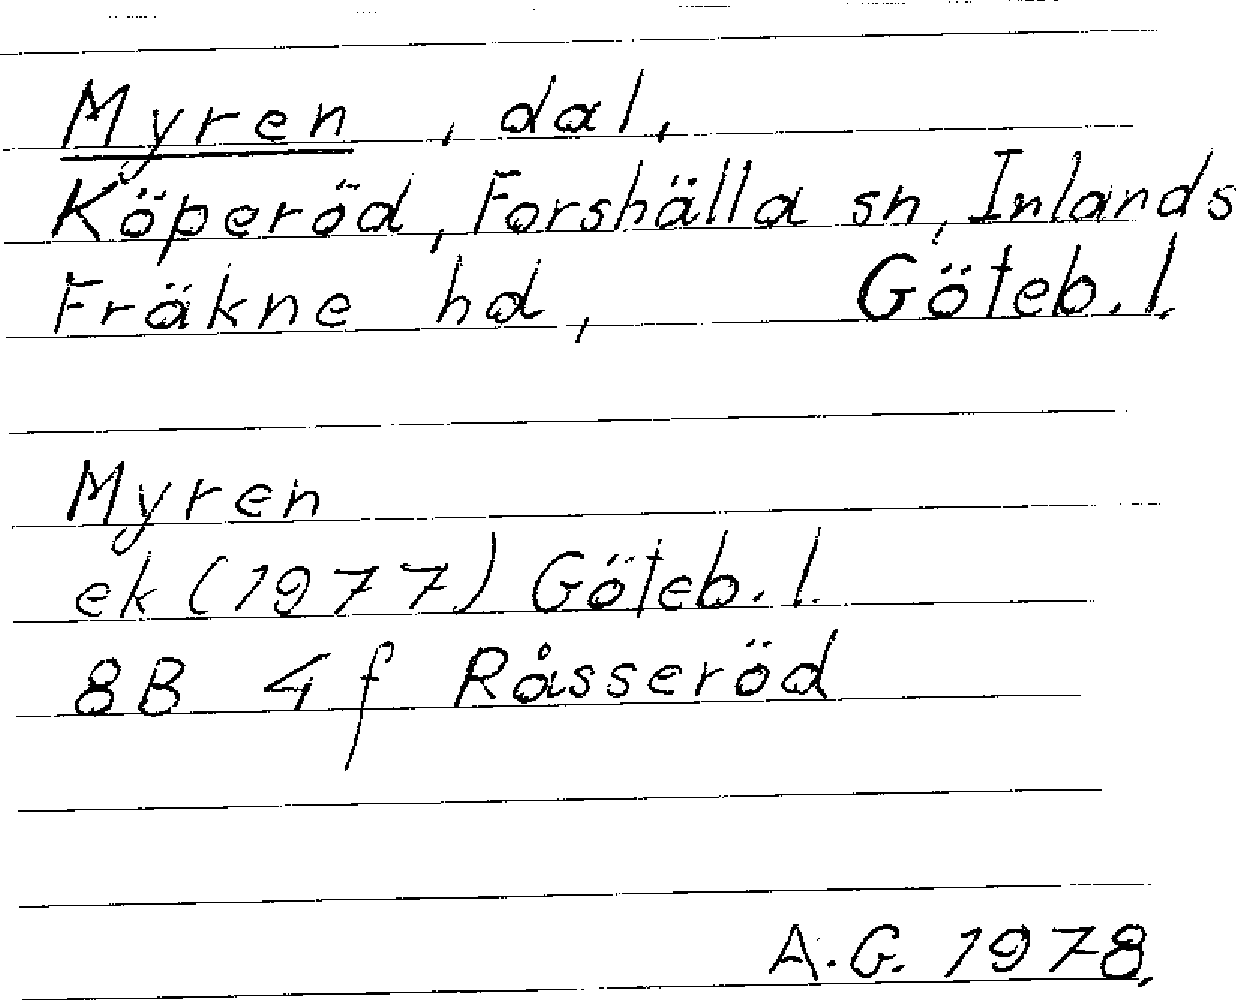 Myren, dal,
Köperöd, Forshälla sn, Inlands
Fräkne hd, Göteb. l.
Myren
ek (1977) Göteb. l.
8B 4f Råsseröd
A.G. 1978.